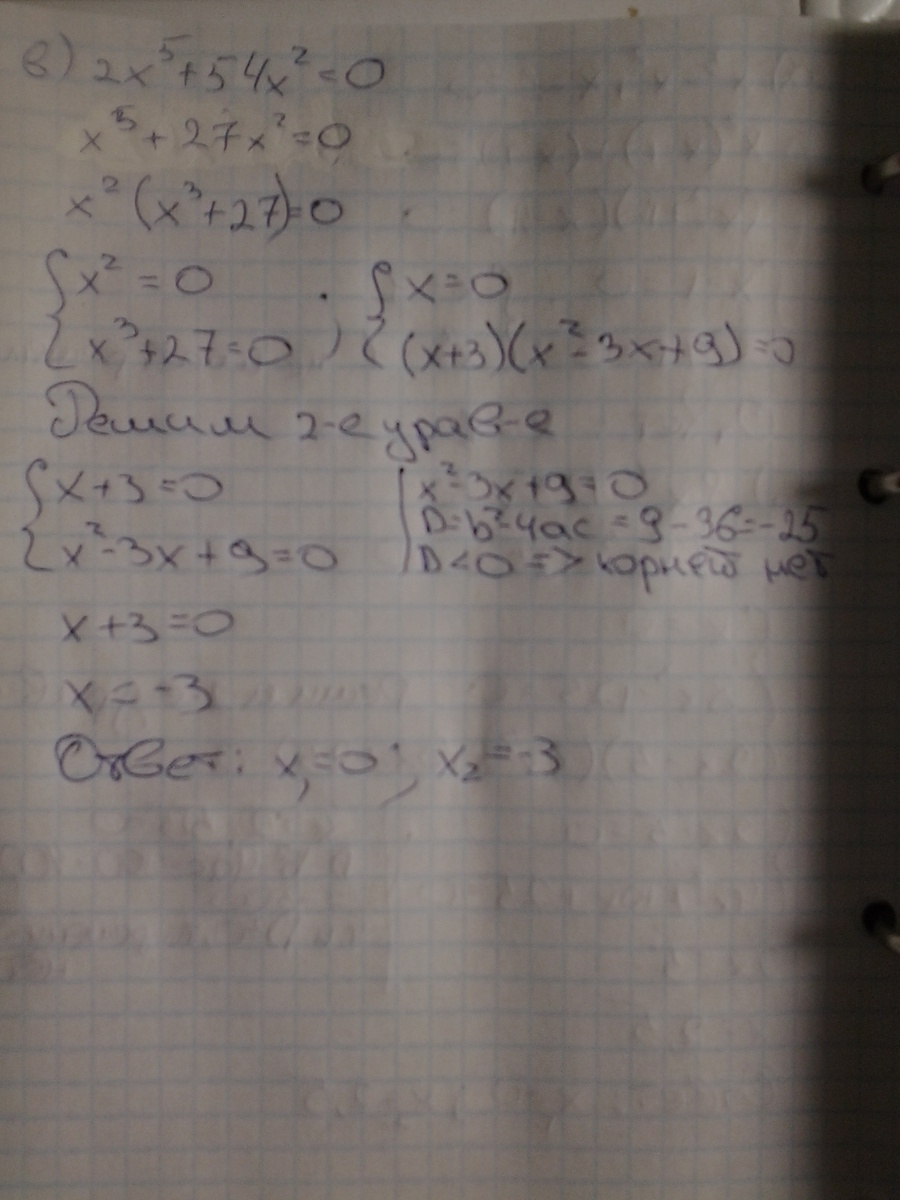 в) 2x⁵+54x²=0
x⁵+27x²=0
x²(x³+27)=0
{x²=0 ; {x=0
{x³+27=0 {(x+3)(x²-3x+9)=0
Решим 2-е урав-е
{x+3=0 | x²-3x+9=0
{x²-3x+9=0 | D=b²-4ac=9-36=-25
D<0 => корней нет
x+3=0
x=-3
Ответ: x₁=0; x₂=-3